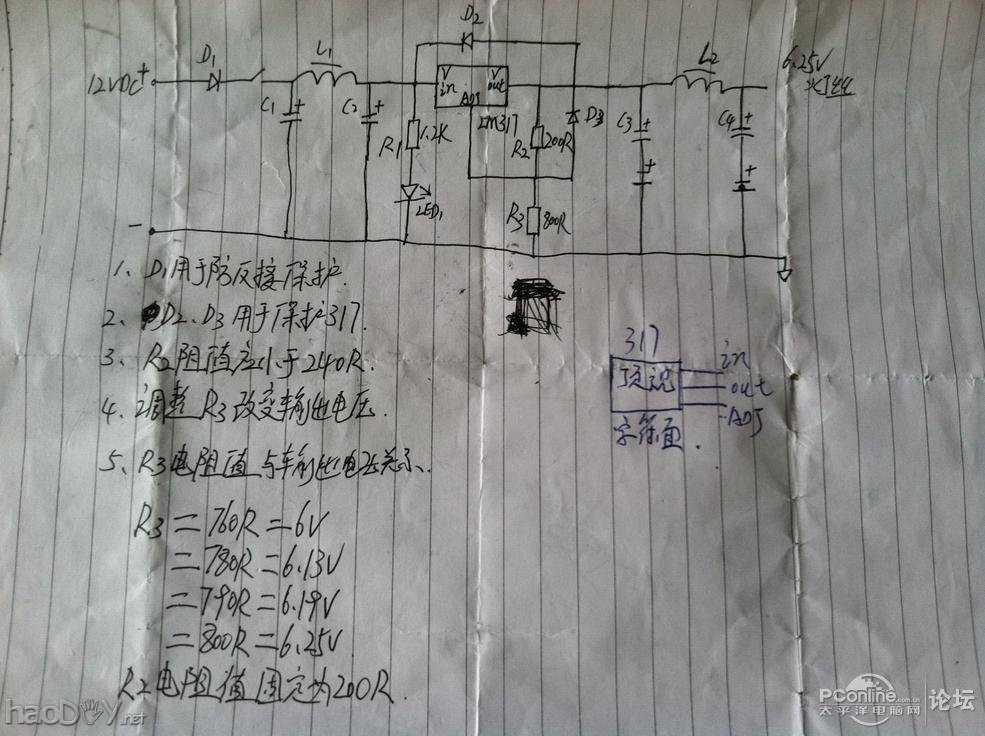 D2
D1
L1
L2
6.25V
12VDC+
V in
V out
ADJ
LM317
C1 +
C2 +
R1 1.2K
R2 200R
D3
C3 +
C4 +
+
+
LED1
R3 800R
—
1、D1用于防反接保护.
2、D2、D3用于保护317.
3、R2阻值应小于240R.
4、调整R3改变输出电压.
5、R3电阻值与输出电压关系.
R3=760R=6V
=780R=6.13V
=790R=6.19V
=800R=6.25V
R2电阻值固定为200R.
317
顶视
in
out
ADJ
字符面.
haoDIY.net
PConline.com.cn
太平洋电脑网
论坛